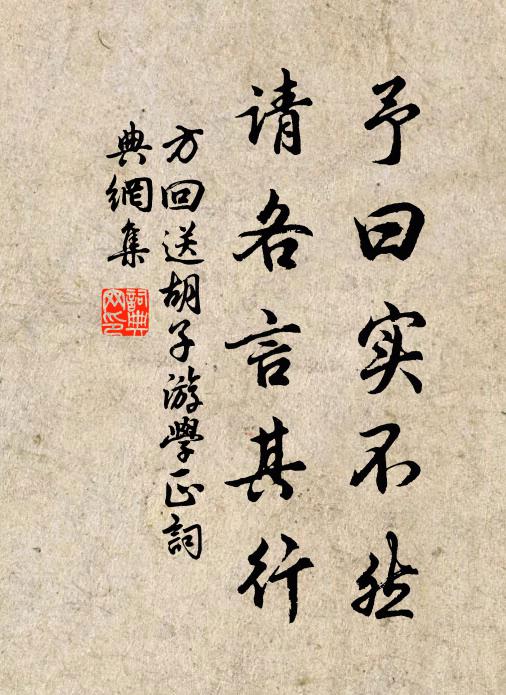 予曰实不然
请各言其行
方回送胡子游學正詞
典網集
詞典网印